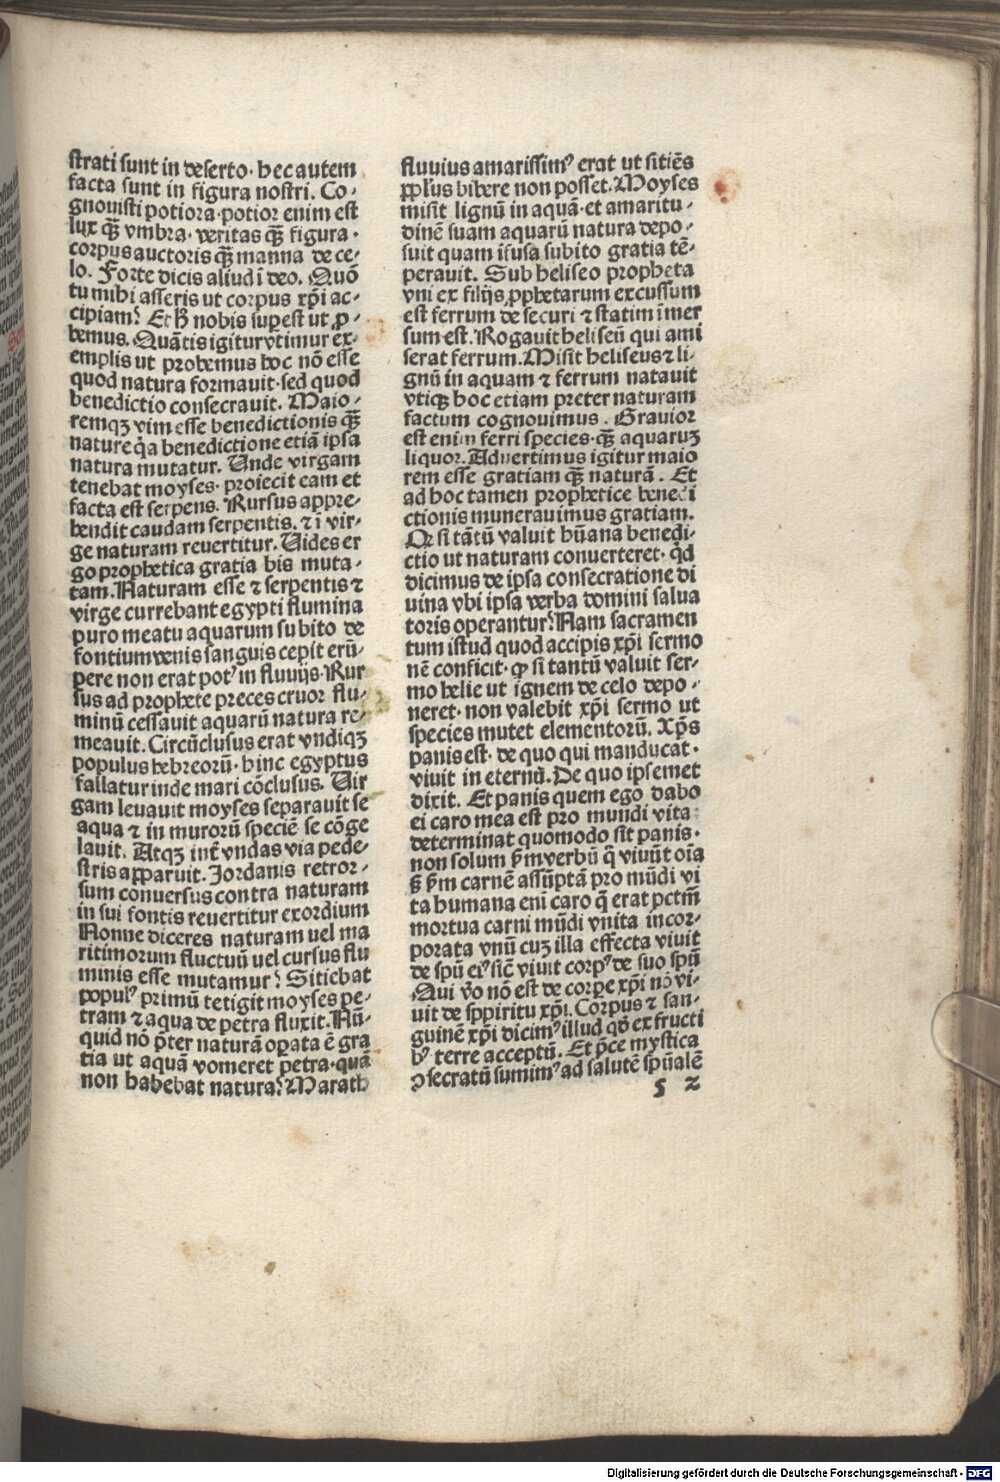 strati sunt in deserto· hec autem
facta sunt in figura nostri. Co⸗
gnouisti potiora·potior enim est
lux qȝ̄ vmbra· veritas qȝ̄ figura·
corpus auctoris qȝ̄ manna de ce⸗
lo. Forte dicis aliud ī deo. Quō
tu mihi asseris ut corpus xp̄i ac⸗
cipiam? Et h̄ nobis sup̱est ut ꝓ⸗
bemus. Quātis igitur vtimur ex⸗
emplis ut probemus hoc nō esse
quod natura formauit·sed quod
benedictio consecrauit. Maio⸗
remqȝ vim esse benedictionis qȝ̄
nature q̇a benedictione etiā ipsa
natura mutatur. Unde virgam
tenebat moyses· proiecit eam et
facta est serpens. Rursus appre⸗
hendit caudam serpentis. ⁊ ī vir⸗
ge naturam reuertitur. Uides er
go prophetica gratia bis muta⸗
tam. Naturam esse ⁊ serpentis ⁊
virge currebant egypti flumina
puro meatu aquarum subito de
fontium venis sanguis cepit erū⸗
pere non erat potꝰ in fluuijs. Rur
sus ad prophete preces cruor flu⸗
minū cessauit aquarū natura re⸗
meauit. Circūclusus erat vndiqȝ
populus hebreorū· hinc egyptus
fallatur inde mari cōclusus. Uir
gam leuauit moyses separauit se
aqua ⁊ in murorū speciē se cōge
lauit. Atqȝ int̄ vndas via pede⸗
stris apparuit. Jordanis retror⸗
sum conuersus contra naturam
in sui fontis reuertitur exordium
Nonne diceres naturam uel ma
ritimorum fluctuū uel cursus flu
minis esse mutamur? Sitiebat
populꝰ primū tetigit moyses pe⸗
tram ⁊ aqua de petra fluxit. Nū⸗
quid nō p̄ter naturā op̱ata ē gra
tia ut aquā vomeret petra·quā
non habebat natura? Marath
fluuius amarissimꝰ erat ut sitiēs
pp̄l'us bibere non posset. Moyses
misit lignū in aquā·et amaritu⸗
dinē suam aquarū natura depo⸗
suit quam īfusa subito gratia tē⸗
perauit. Sub heliseo propheta
vni ex filijs ꝓphetarum excussum
est ferrum de securi ⁊ statim īmer
sum·est. Rogauit heliseū qui ami
serat ferrum. Misit heliseus ⁊ li⸗
gnū in aquam ⁊ ferrum natauit
vtiqȝ hoc etiam preter naturam
factum cognouimus. Grauior
est enim ferri species·qȝ̄ aquaruȝ
liquor. Aduertimus igitur maio
rem esse gratiam qȝ̄ naturā. Et
ad hoc tamen prophetice benedi
ctionis munerauimus gratiam.
Qr̄ si tātū valuit hūana benedi⸗
ctio ut naturam conuerteret· q̇d
dicimus de ipsa consecratione di
uina vbi ipsa verba domini salua
toris operantur? Nam sacramen
tum istud quod accipis xp̄i sermo
nē conficit· qꝫ si tantū valuit ser⸗
mo helie ut ignem de celo depo⸗
neret· non valebit xp̄i sermo ut
species mutet elementorū. Xp̄s
panis est· de quo qui manducat·
viuit in eternū. De quo ipsemet
dixit. Et panis quem ego dabo
ei caro mea est pro mundi vita:
determinat quomodo sit panis·
non solum s̄m verbū q̄ viuūt oīa
sȝ s̄m carnē assūptā pro mūdi vi
ta humana eni caro q̄ erat pctm̄
mortua carni mūdi vnita incor⸗
porata vnū cuȝ illa effecta viuit
de spū eiꝰ sic̄ viuit corpꝰ de suo spū
Qui v̊o nō est de corpe xp̄i nō vi⸗
uit de sppiritu xp̄i. Corpus ⁊ san⸗
guinē xp̄i dicimꝰ illud qd̄ ex fructi
bꝰ terre acceptū. Et p̄ce mystica
ꝯsecratū sumimꝰ ad salutē sp̄ualē
s 2
Digitalisierung gefördert durch die Deutsche Forschungsgemeinschaft - DFG